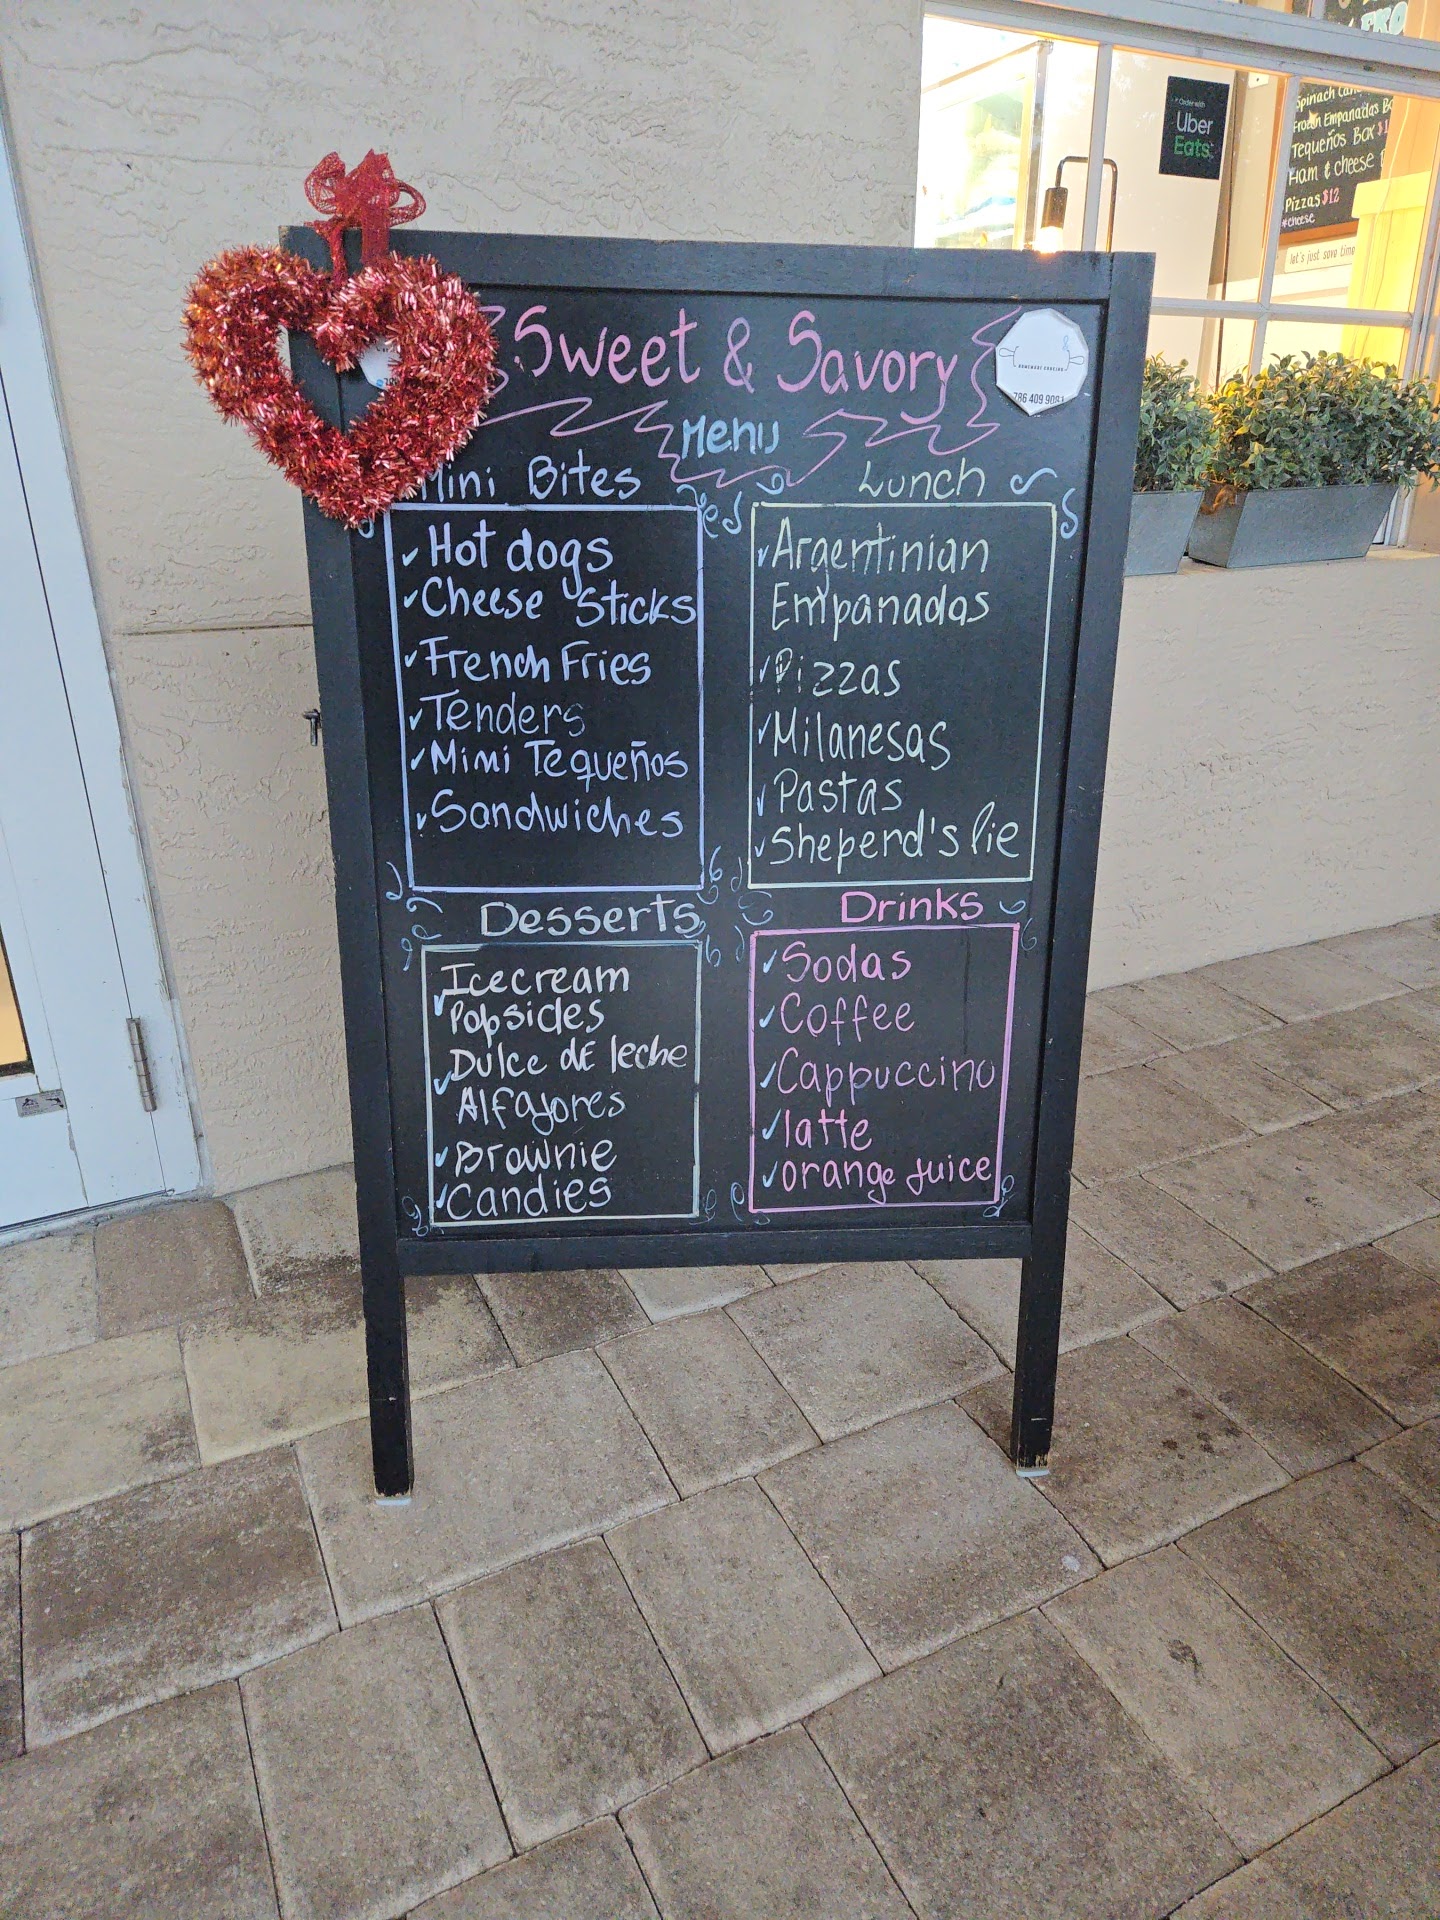 Sweet & Savory
Menu
HOMEMADE COOKING
786 409 9081
Mini Bites
Hot dogs
Cheese Sticks
French Fries
Tenders
Mini Tequeños
Sandwiches
Lunch
Argentinian
Empanadas
Pizzas
Milanesas
Pastas
Sheperd's Pie
Desserts
Icecream
Popsicles
Dulce de leche
Alfajores
Brownie
Candies
Drinks
Sodas
Coffee
Cappuccino
latte
orange juice
Order with
Uber
Eats
Spinach
Frozen Empanadas
Tequeños Box
Ham & cheese
Pizzas $12
*cheese
let's just save time